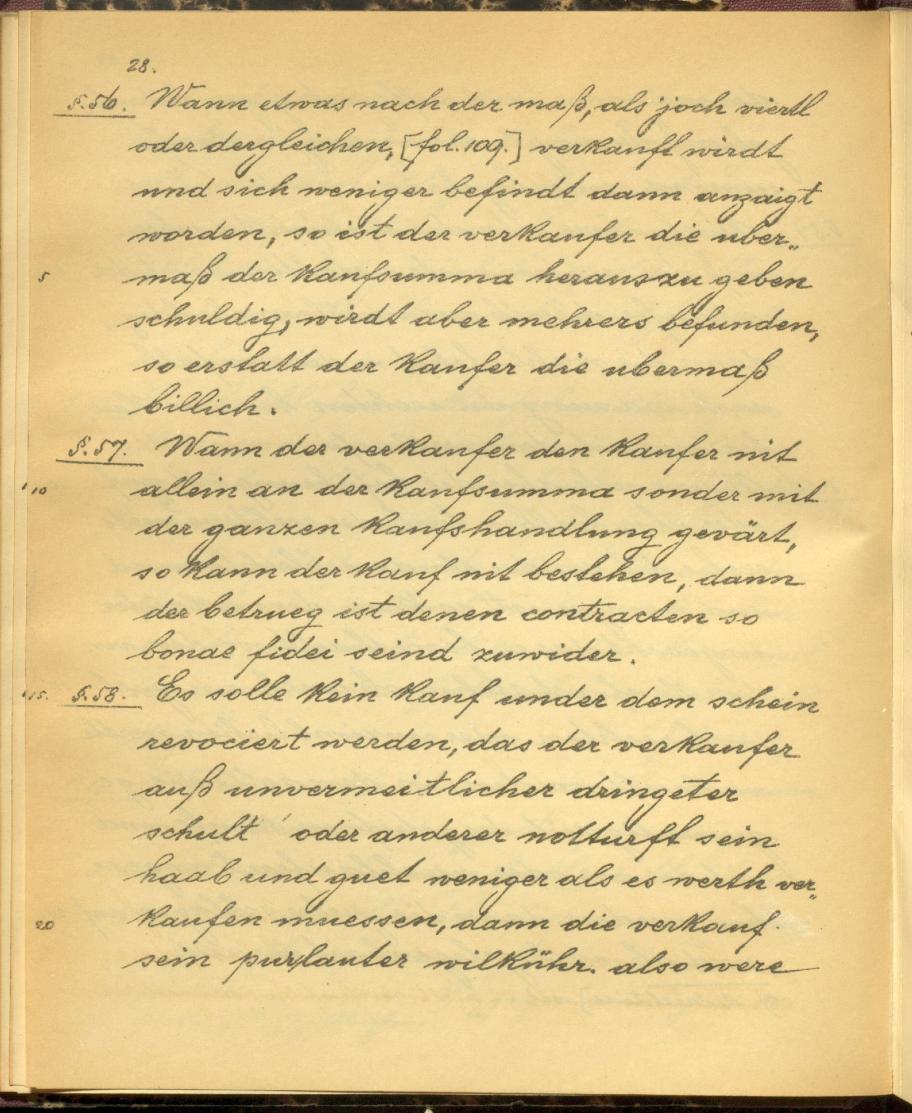 28.
§.56. Wann etwas nach der maß, als joch viertl
oder dergleichen, [fol. 109.] verkauft wirdt
und sich weniger befindt dann anzaigt
worden, so ist der verkaufer die uber„
5 maß der kaufsumma herauszu geben
schuldig, wirdt aber mehrers befunden,
so erstatt der kaufer die ubermaß
billich.
§.57. Wann der verkaufer den kaufer nit
10 allein an der kaufsumma sonder mit
der ganzen kaufshandlung gevärt,
so kann der kauf nit bestehen, dann
der betrueg ist denen contracten so
bonae fidei seind zuwider.
15. §.58. Es solle kein kauf under dem schein
revociert werden, das der verkaufer
auß unvermeitlicher dringeter
schult oder anderer notturft sein
haab und guet weniger als es werth ver„
20 kaufen muessen, dann die verkauf
sein purlauter wilkühr. also were